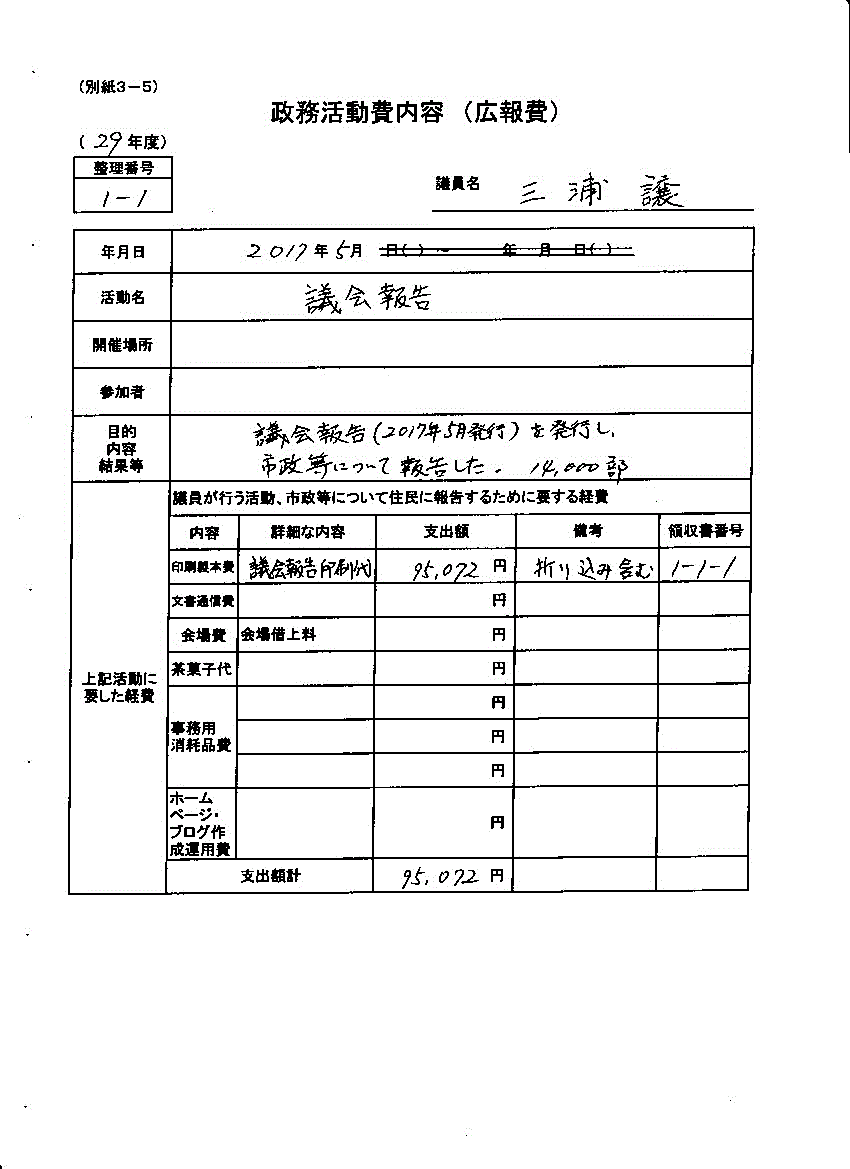 （別紙３－５）
政務活動費内容（広報費）
（ 29 年度）
整理番号
1-1
議員名 三浦 譲
年月日 2017 年 5 月 日( ) ～ 年 月 日( )
活動名 議会報告
開催場所
参加者
目的
内容
結果等
議会報告(2017年5月発行)を発行し、
市政等について報告した。 14,000部
上記活動に
要した経費
議員が行う活動、市政等について住民に報告するために要する経費
内容 詳細な内容 支出額 備考 領収書番号
印刷製本費 議会報告印刷代 95,072 円 折り込み含む 1-1-1
文書通信費 円
会場費 会場借上料 円
茶菓子代 円
事務用
消耗品費
円
円
円
ホーム
ページ・
ブログ作
成運用費
円
支出額計 95,072 円